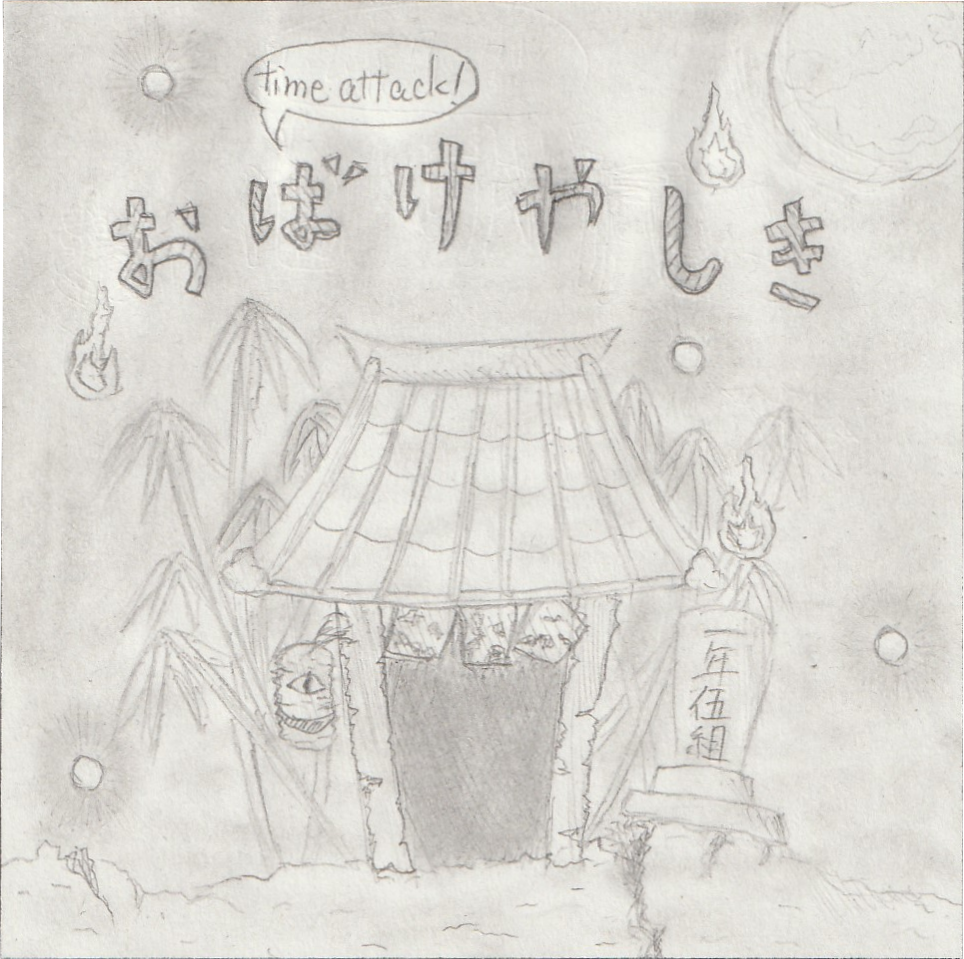 time attack!
おばけやしき
一年伍組